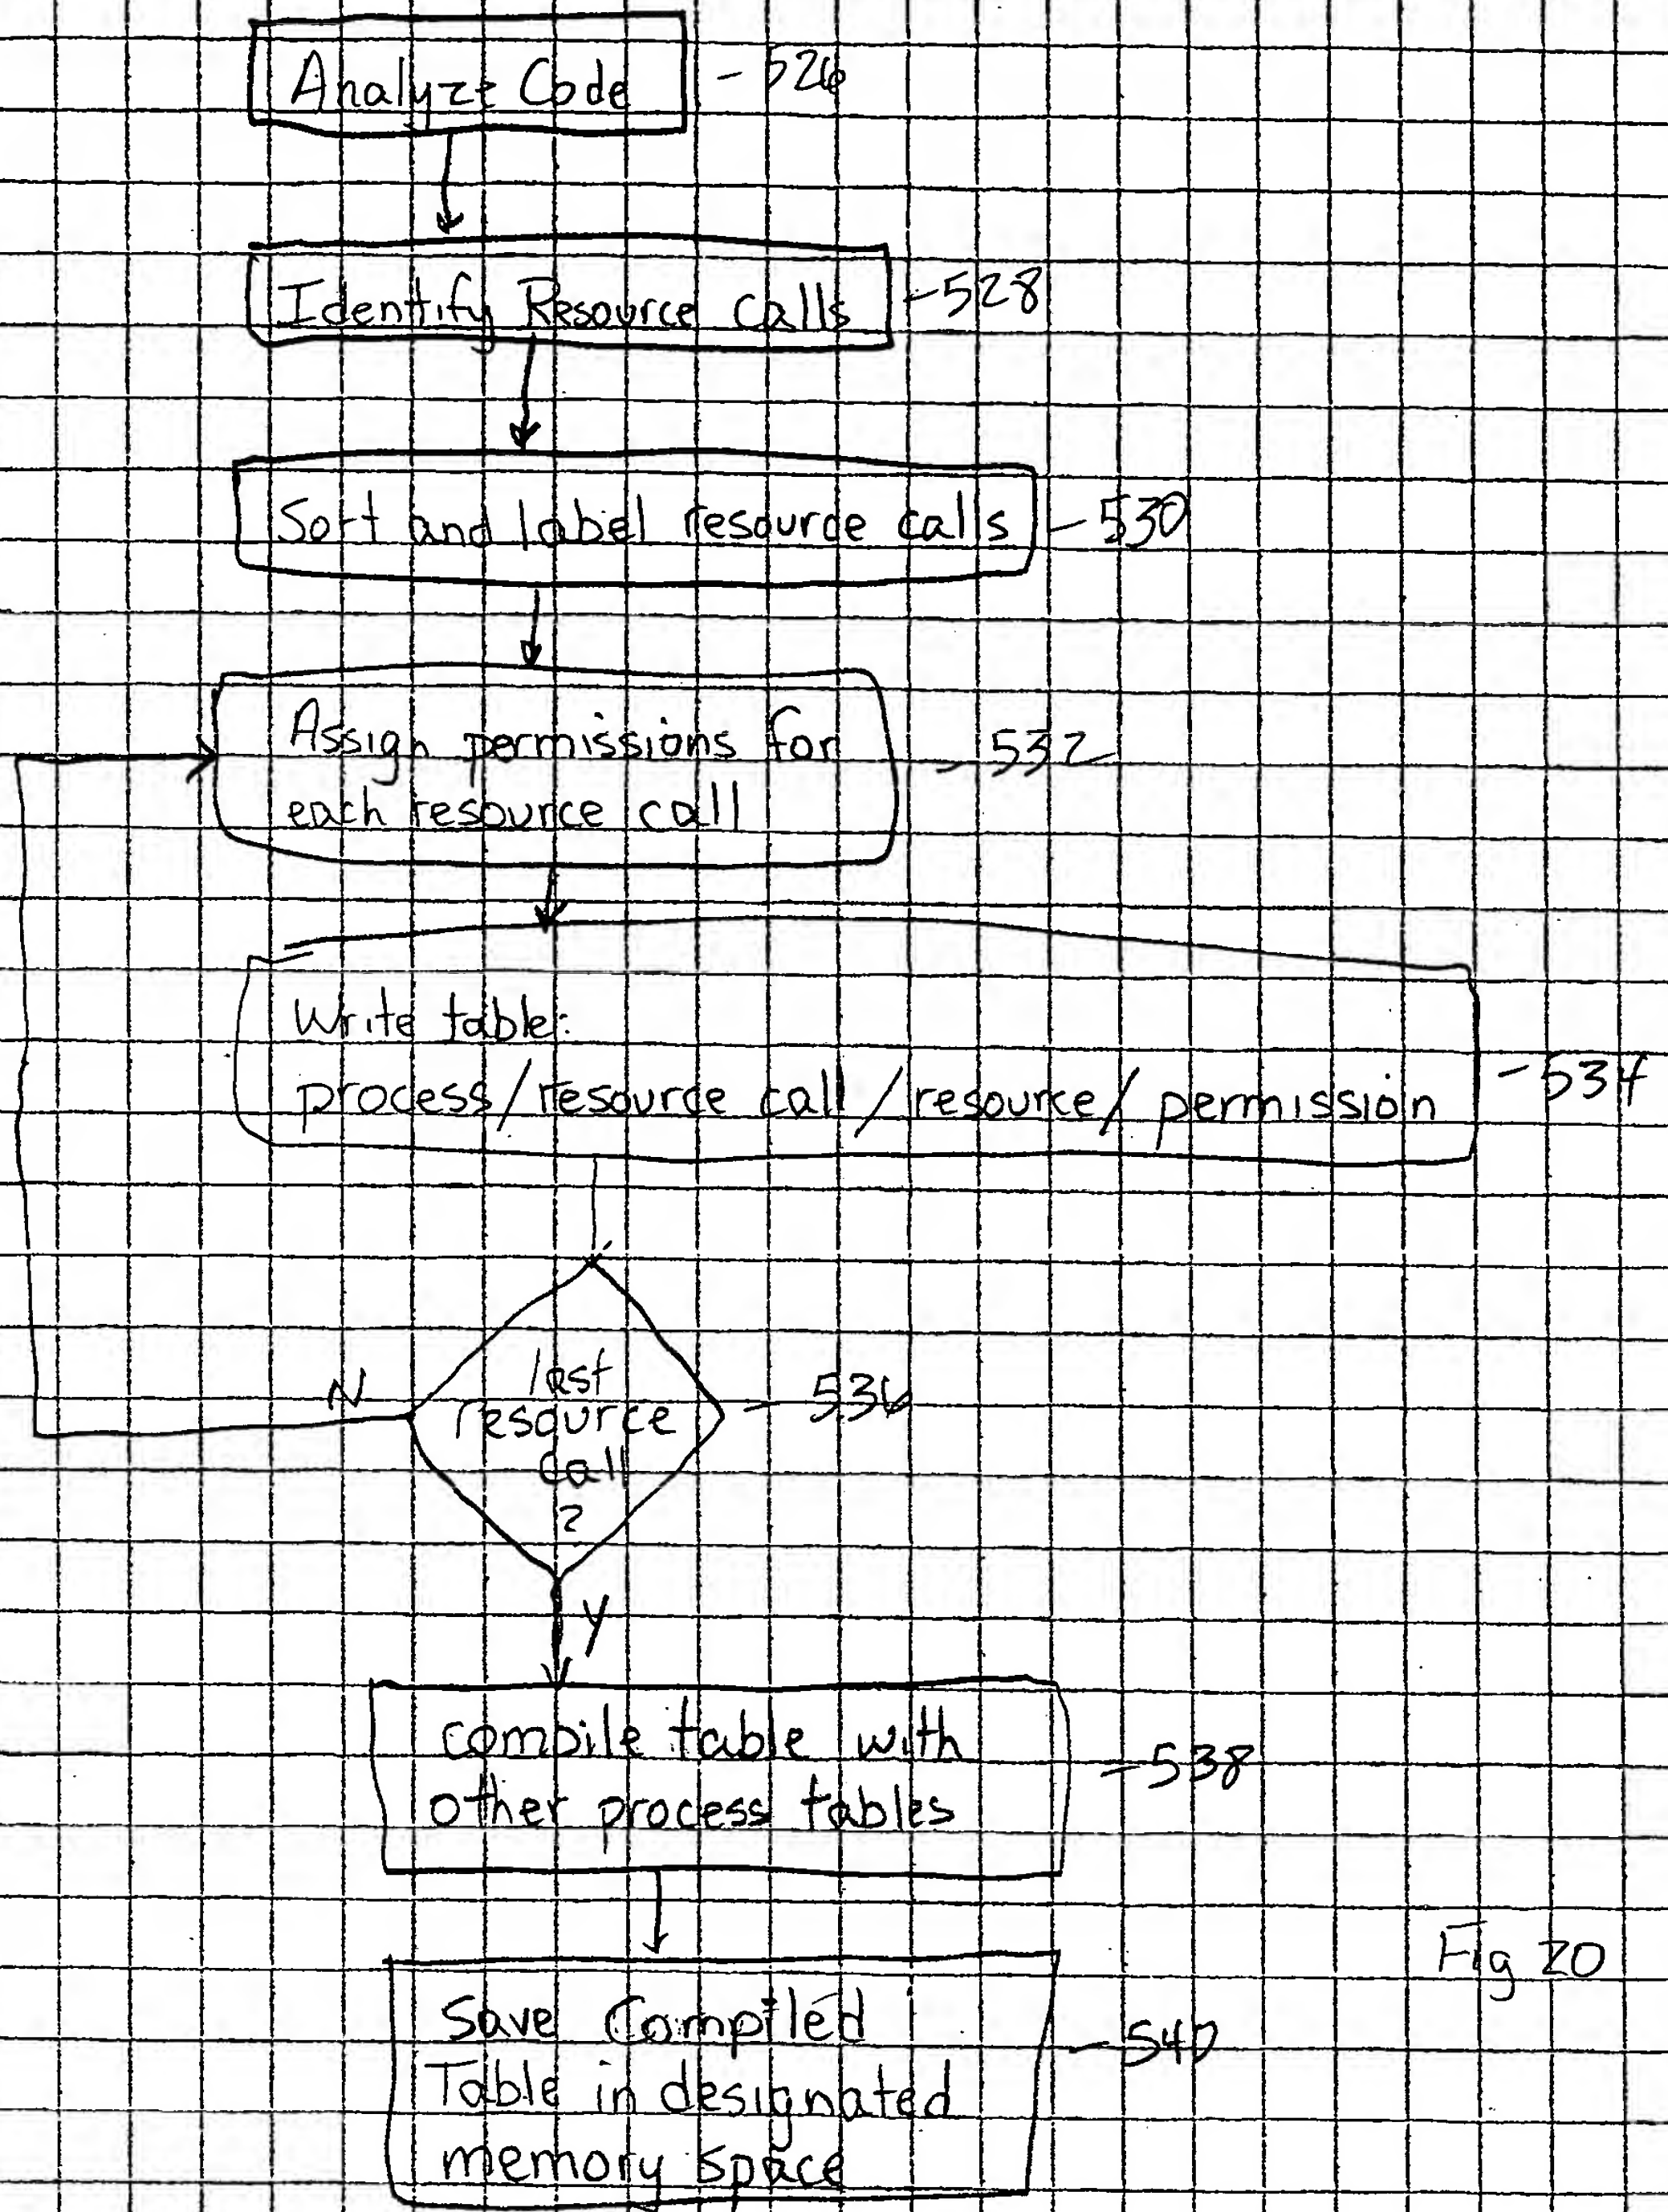 Analyze Code - 526
Identify Resource calls - 528
Sort and label resource calls - 530
Assign permissions for - 532
each resource call
Write table:
process/resource call/resource/permission - 534
last
resource
call
?
- 536
N
Y
compile table with
other process tables - 538
Save Compiled
Table in designated
memory space - 540
Fig 20